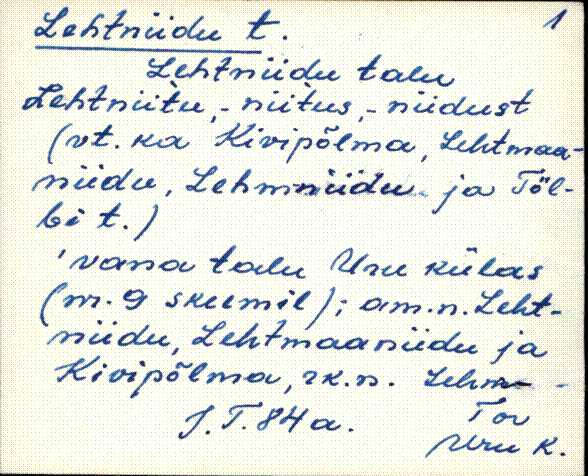 Lehtniidu t. 1
Lehtniidu talu
Lehtniitu, -niitus, -niidust
(vt. ka Kivipõlma, Lehtmaa-
niidu, Lehmniidu ja Töl-
bi t.)
'vana talu Uru külas
(nr. 9 skeemil); am.n. Leht-
niidu, Lehtmaaniidu ja
Kivipõlma, rk.n. Lehm-
J.T. 84a. Tor
Uru k.